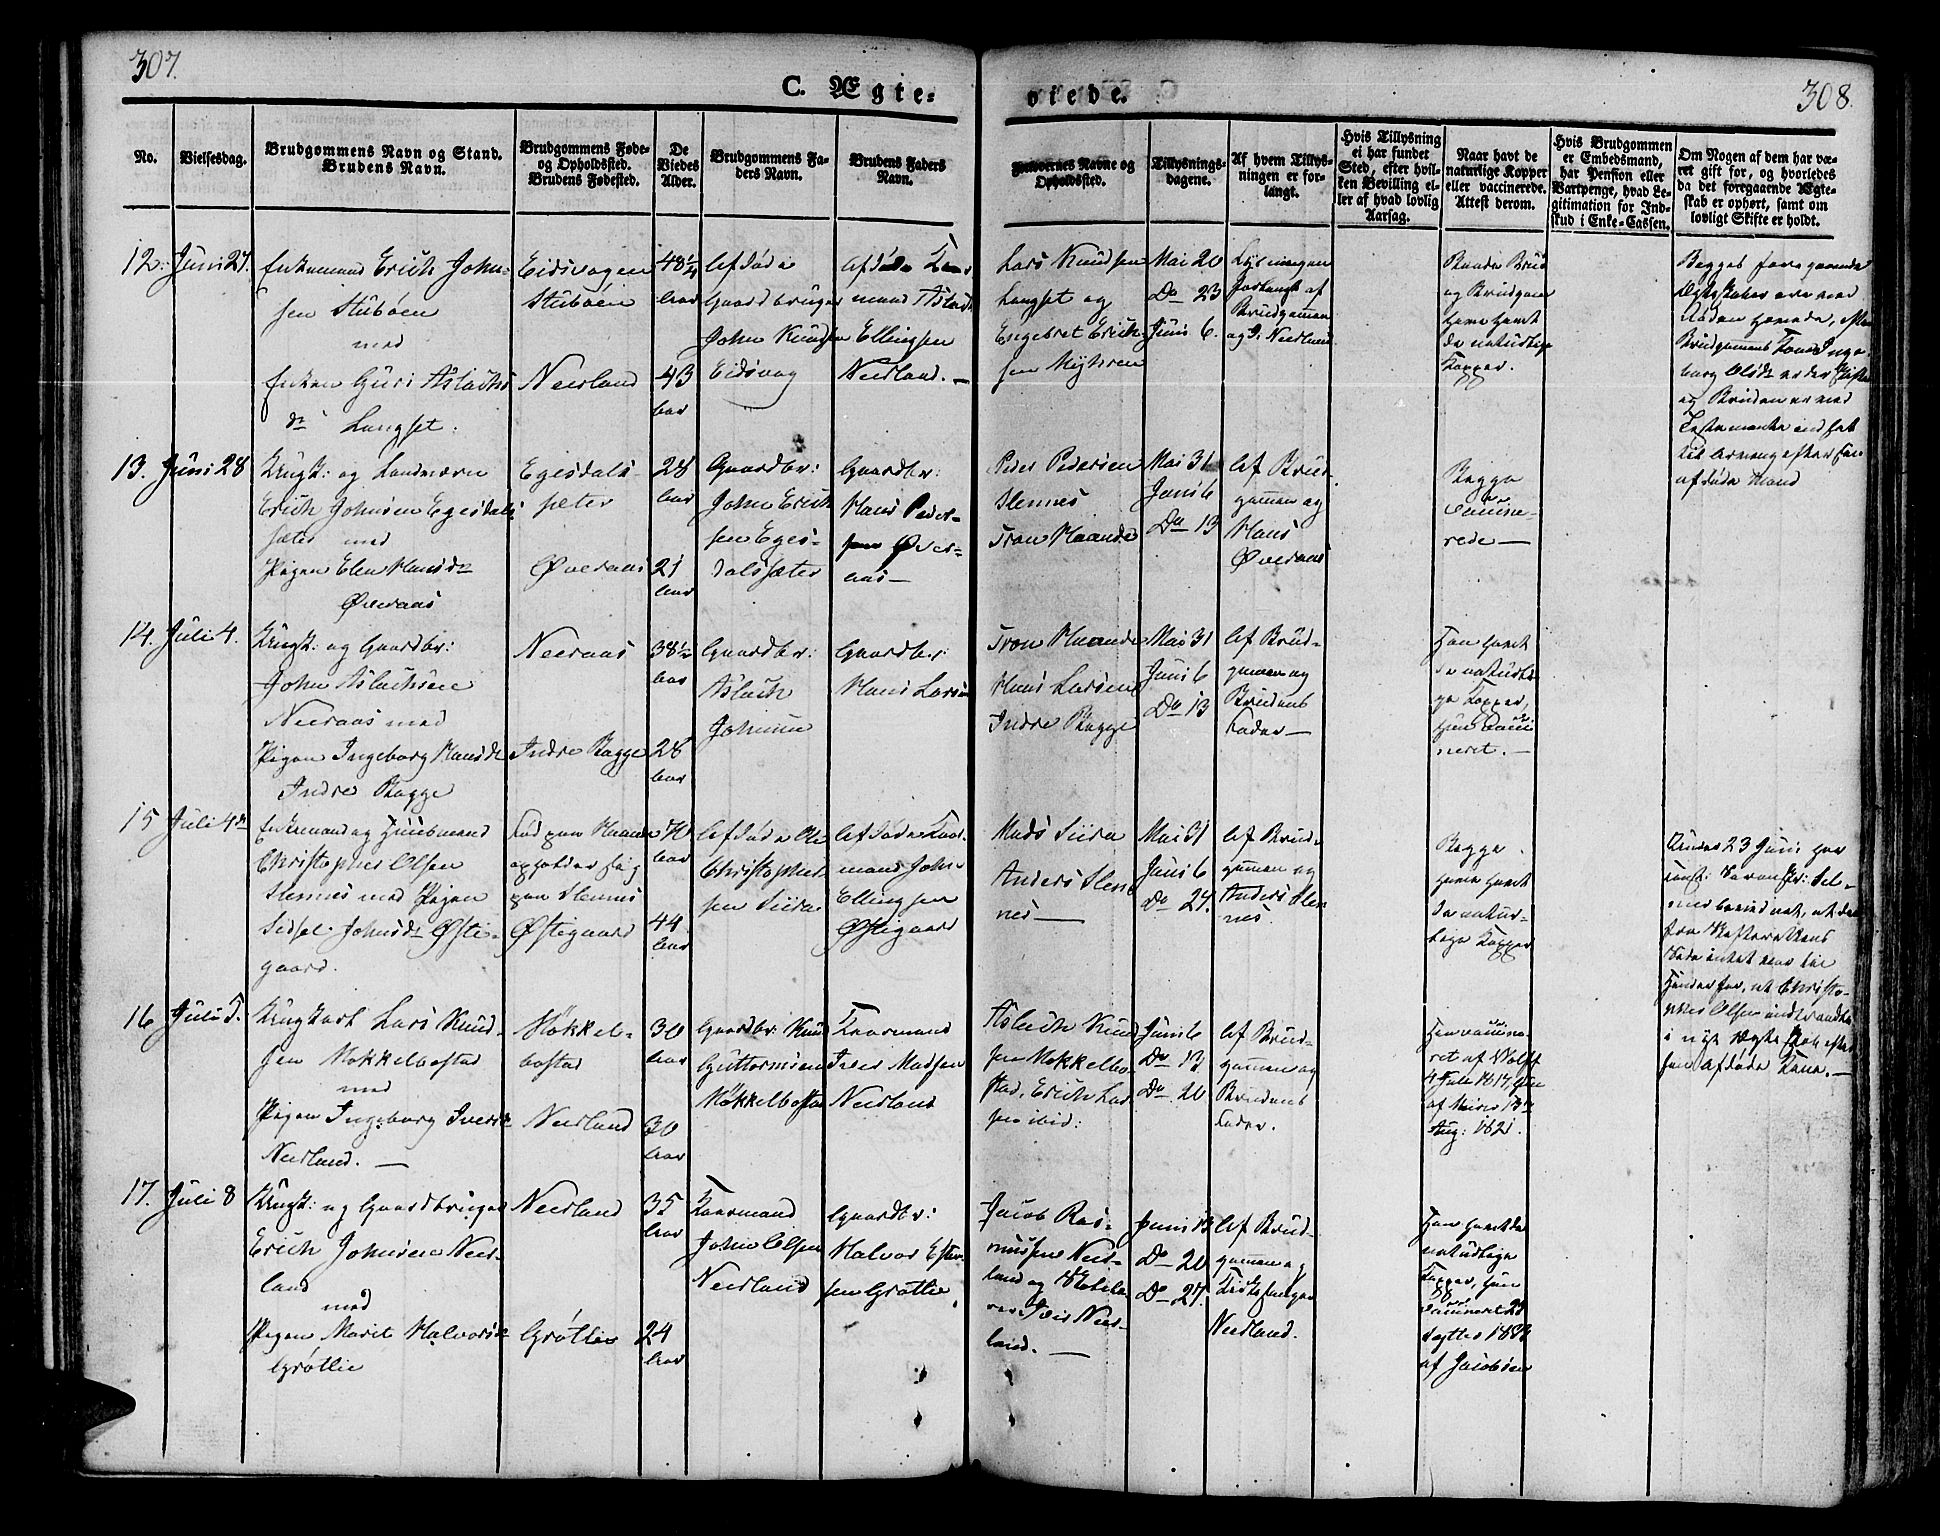 307.
308.
C. Ægte=
viede.
No.
Vielsesdag.
Brudgommens Navn og Stand.
Brudens Navn.
Brudgommens Føde-
og Opholdssted.
Brudens Fødested.
De
Viedes
Alder.
Brudgommens Fa-
ders Navn.
Brudens Faders
Navn.
Forlovernes Navne og
Opholdssted.
Tillysnings-
dagene.
Af hvem Tillys-
ningen er for-
langt.
Hvis Tillysning
ei har fundet
Sted, efter hvil-
ken Bevilling el-
ler af hvad lovlig
Aarsag.
Naar havt de
naturlige Kopper
eller vaccinerede.
Attest derom.
Hvis Brudgommen
er Embedsmand,
har Pension eller
Vartpenge, hvad Le-
gitimation for Ind-
skud i Enke-Cassen.
Om Nogen af dem har væ-
ret gift før, og hvorledes
da det foregaaende Ægte-
skab er ophørt, samt om
lovligt Skifte er holdt.
12. Juni 27.
Enkemand Erich John-
sen Stubøen
med
Enken Guri Aslachs
dr Langset.
Eidsvaagen
Stubøen
Neerland
48 1/4
Aar
43
Aar
Afdøde
Gaardbruger
John Knudsen
Eidsvag
Afdøde
mand Aslach
Ellingsen
Neerland. —
Lars Knudsen
Langset og
Engebret Erich-
sen Myhren
Mai 20
Do 23
Juni 6.
Lysningen
forlangt af
Brudgommen
og Neerland
Baade Brud
og Brudgom
have havt
de naturlige
Kopper.
Begges foregaaende
Ægteskaber ere ved
Døden hævede, efter
Brudgommens Kone Inge-
borg er der Skifte
og Bruden er ved
Testamente indsat
til Arving efter sin
afdøde Mand
13. Juni 28
Ungk: og Landværn
Erich Johnsen Egesdals
sæter med
Pigen Elen Hansdr
Øveraas
Egesdals
sæter
Øveraas
28
Aar
21
Aar
Gaardbr:
John Erich
sen Eges-
dalssæter
Gaardbr:
Hans Peder-
sen Øver-
aas —
Peder Pedersen
Slennes
Tron Haande
Mai 31
Juni 6
Do 13
Af Brud-
gommen og
Hans
Øveraas
Begge
vaccine-
rede —
14. Juli 4.
Ungk: og Gaardbr:
John Aslachsen
Neeraas med
Pigen Ingeborg Hansdr
Indre Bogge
Neeraas
Indre Bogge
38 1/2
Aar
28
Aar
Gaardbr:
Aslach
Johnsen
Gaardbr:
Hans Larsen
Tron Haande
Hans Larsen
Indre Bogge
Mai 31
Juni 6
Do 13
Af Brud-
gommen og
Brudens
Fader —
Han havt
de naturli-
ge Kopper,
hun vacci-
neret. —
15 Juli 4de
Enkemand og Huusmand
Christopher Olsen
Slennes med Pigen
Sidsel Johnsdr Østi-
gaard.
Fød paa Haande
opholder sig
paa Slennes
Østigaard
Aar
44
Aar
Afdøde Ole
Christopher-
sen Siira
Afdøde Kaar-
mand John
Ellingsen
Østigaard
Mads Siira
Anders Slen-
nes —
Mai 31
Juni 6
Do 27.
Af Brud-
gommen og
Anders Slen
nes.
Begge
have havt
de natur-
lige Kopper
23 Juni har
Sel-
mer bevidnet, at der
fra Skifterettens
Side intet er til
Hinder for, at Christo-
pher Olsen indtræder
i nyt Ægteskab efter
sin afdøde Kone. —
16 Juli 5.
Ungkarl Lars Knud-
sen Møkkelbostad
med
Pigen Ingeborg Iversdr
Neerland. —
Møkkel-
bostad
Neerland
30
Aar
30
Aar
Gaardbr: Knud
Guttormsen
Møkkelbostad
Kaarmand
Iver Madsen
Neerland
Aslach Knud
sen Møkkelbo-
stad, Erich Lar
sen ibid:
Juni 6
Do 13
Do 20
Af Brud-
gommen og
Brudens
Fader.
Han vaccine-
ret af Wolff
4 Juli 1817, hun
af 13de
Aug: 1821.
17. Juli 8
Ungk: og Gaardbruger
Erich Johnsen Neer-
land
med
Pigen Marit Halvorsdr
Grøttie
Neerland
Grøttie
35
Aar
24
Aar
Kaarmand
John Olsen
Neerland
Gaardbr:
Halvor
sen Grøttie.
Jacob Ras-
mussen Neer-
land og
Neer-
land. —
Juni 13
Do 20
Do 27.
Af Brud-
gommen og
Neerland.
Han havt de
naturlige
Kopper, hun
vaccineret 23
af Jacobsen